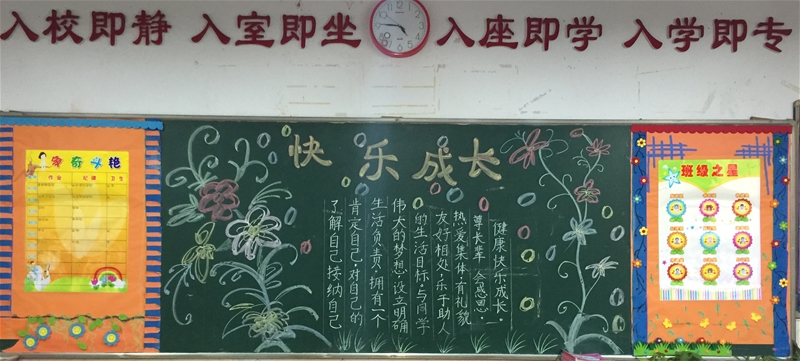 入校即静 入室即坐 入座即学 入学即专
快乐成长
了解自己 接纳自己
肯定自己·对自己的
生活负责·拥有一个
伟大的梦想·设立明确
的生活目标·与同学
友好相处·乐于助人
热爱集体·有礼貌
尊长辈 会感恩·
健康快乐成长·
争奇斗艳
作业 纪律 卫生
班级之星